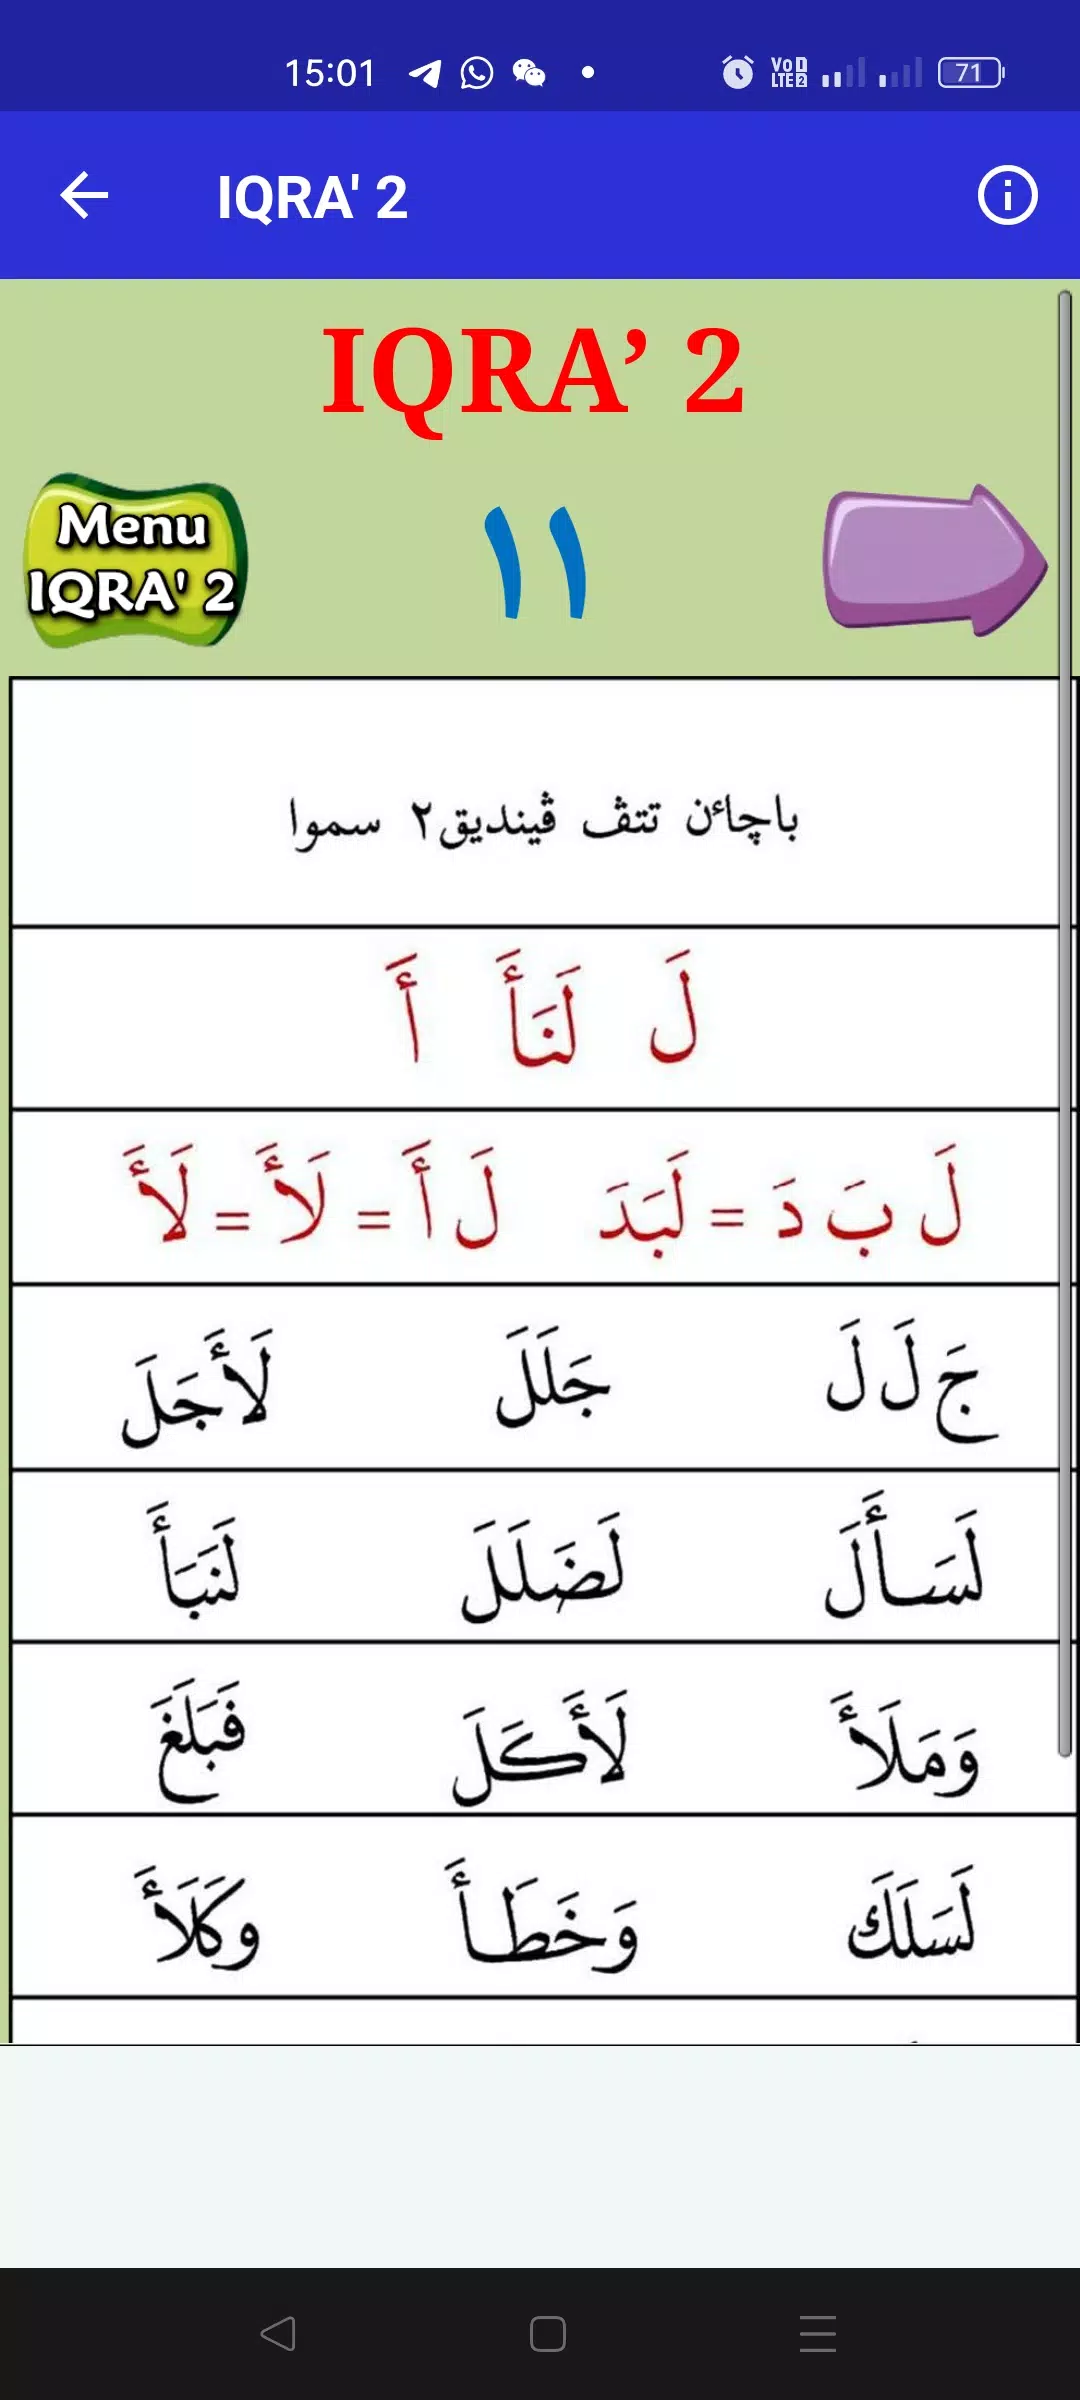 15:01 VoD LTE2 71
IQRA' 2
IQRA’ 2
Menu
IQRA' 2
١١
باچاءن تتڤ ڤينديق٢ سموا
لَ لَنَأَ أَ
لَ بَ دَ = لَبَدَ لَ أَ = لَأَ = لَأَ
جَ لَ لَ جَلَلَ لَأَجَلَ
لَسَأَلَ لَضَلَلَ لَنَبَأَ
وَمَلَأَ لَأَكَلَ فَبَلَغَ
لَسَلَكَ وَخَطَأَ وكَلَأَ